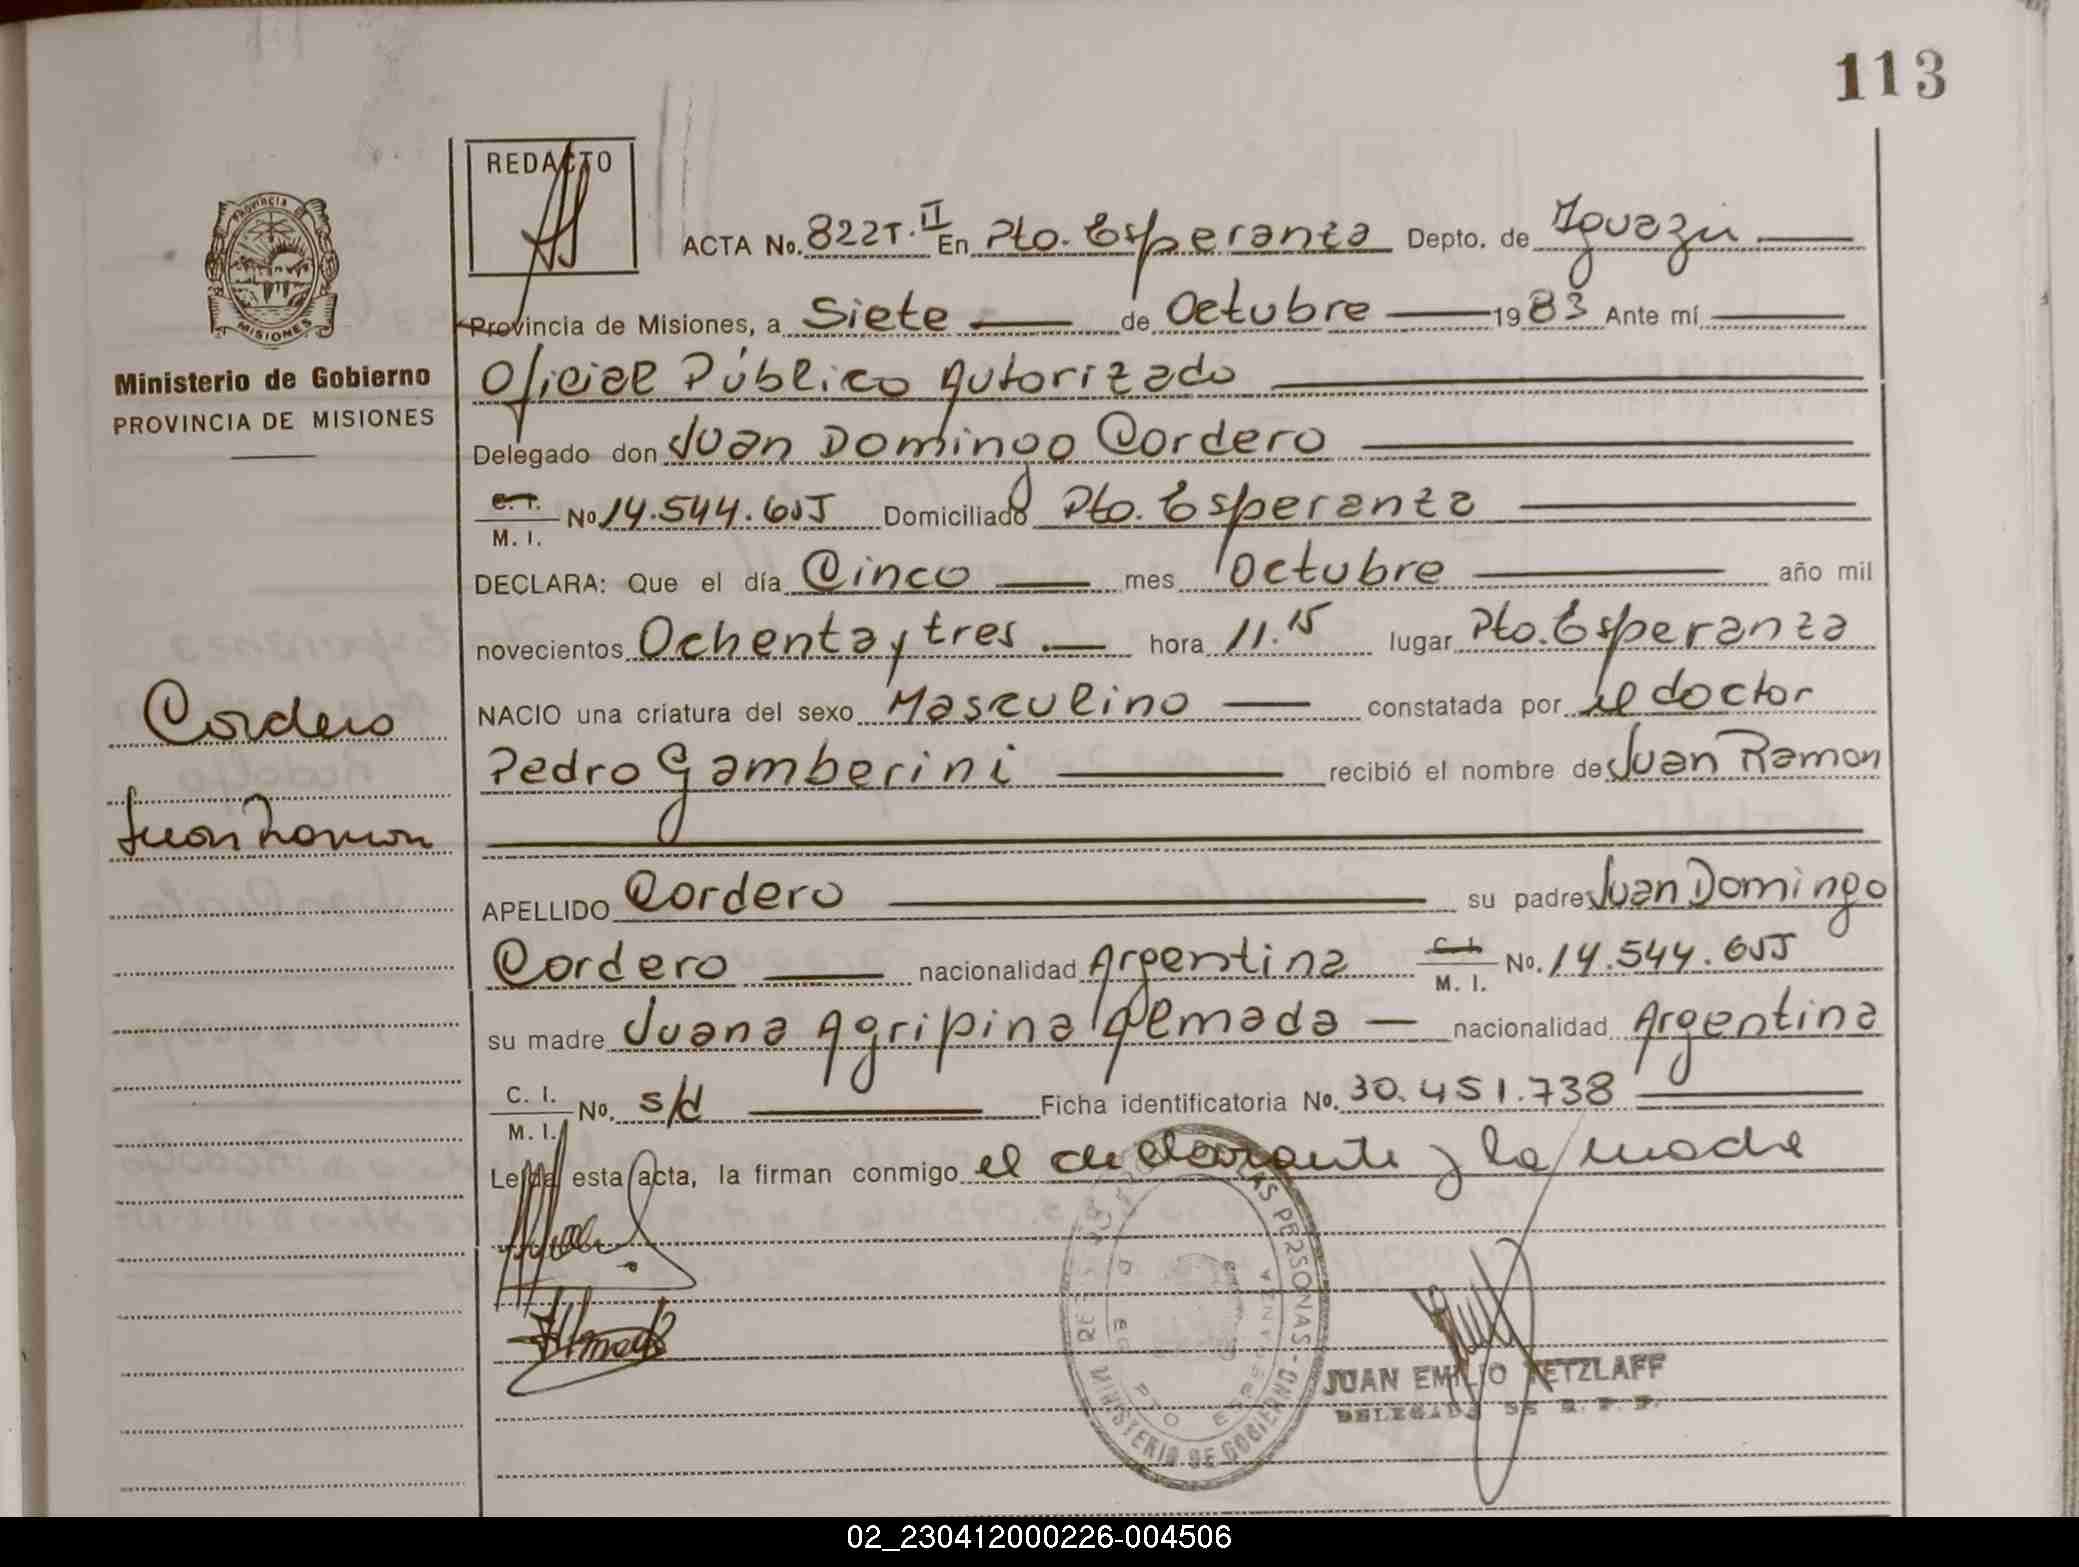 113
REDACTO
ACTA No. 822 T. II En Pto. Esperanza Depto. de Iguazú
Provincia de Misiones, a Siete de Octubre 1983 Ante mí
Oficial Público Autorizado
Delegado don Juan Domingo Cordero
C. I. M. I. No 14.544.655 Domiciliado Pto. Esperanza
DECLARA: Que el día Cinco mes Octubre año mil
novecientos Ochenta y tres hora 11.15 lugar Pto. Esperanza
NACIO una criatura del sexo Masculino constatada por el doctor
Pedro Gamberini recibió el nombre de Juan Ramon
APELLIDO Cordero su padre Juan Domingo
Cordero nacionalidad Argentina C. I. M. I. No. 14.544.655
su madre Juana Agripina Almada nacionalidad Argentina
C. I. M. I. No. s/d Ficha identificatoria No. 30.451.738
Leída esta acta, la firman conmigo el declarante y la madre
PROVINCIA DE MISIONES
Ministerio de Gobierno
PROVINCIA DE MISIONES
Cordero
Juan Ramon
PERSONAS - MINISTERIO DE GOBIERNO
PTO ESPERANZA
JUAN EMILIO RETZLAFF
DELEGADO DE R. P. P.
02_230412000226-004506